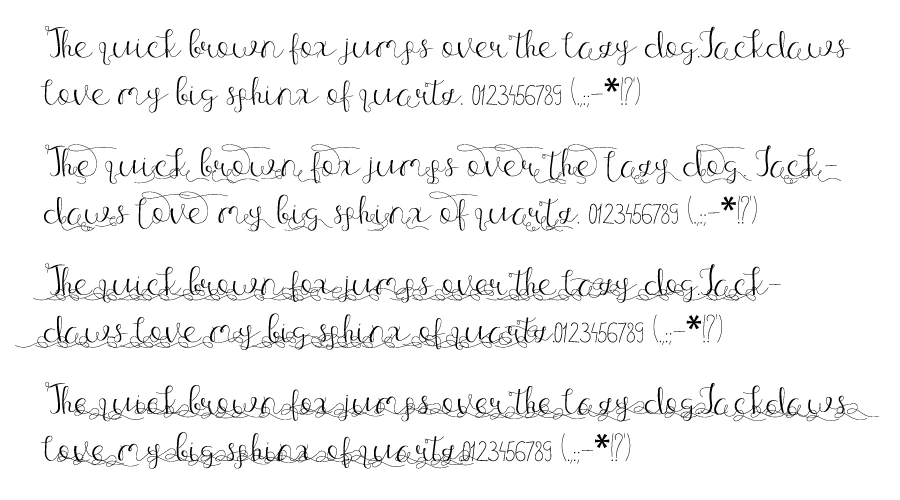 The quick brown fox jumps over the lazy dog.Jackdaws
love my big sphinx of quartz. 0123456789 (.,:;—*!?')
The quick brown fox jumps over the lazy dog. Jack-
daws love my big sphinx of quartz. 0123456789 (.,:;—*!?')
The quick brown fox jumps over the lazy dog.Jack-
daws love my big sphinx of quartz.0123456789 (.,:;—*!?')
The quick brown fox jumps over the lazy dog.Jackdaws
love my big sphinx of quartz.0123456789 (.,:;—*!?')